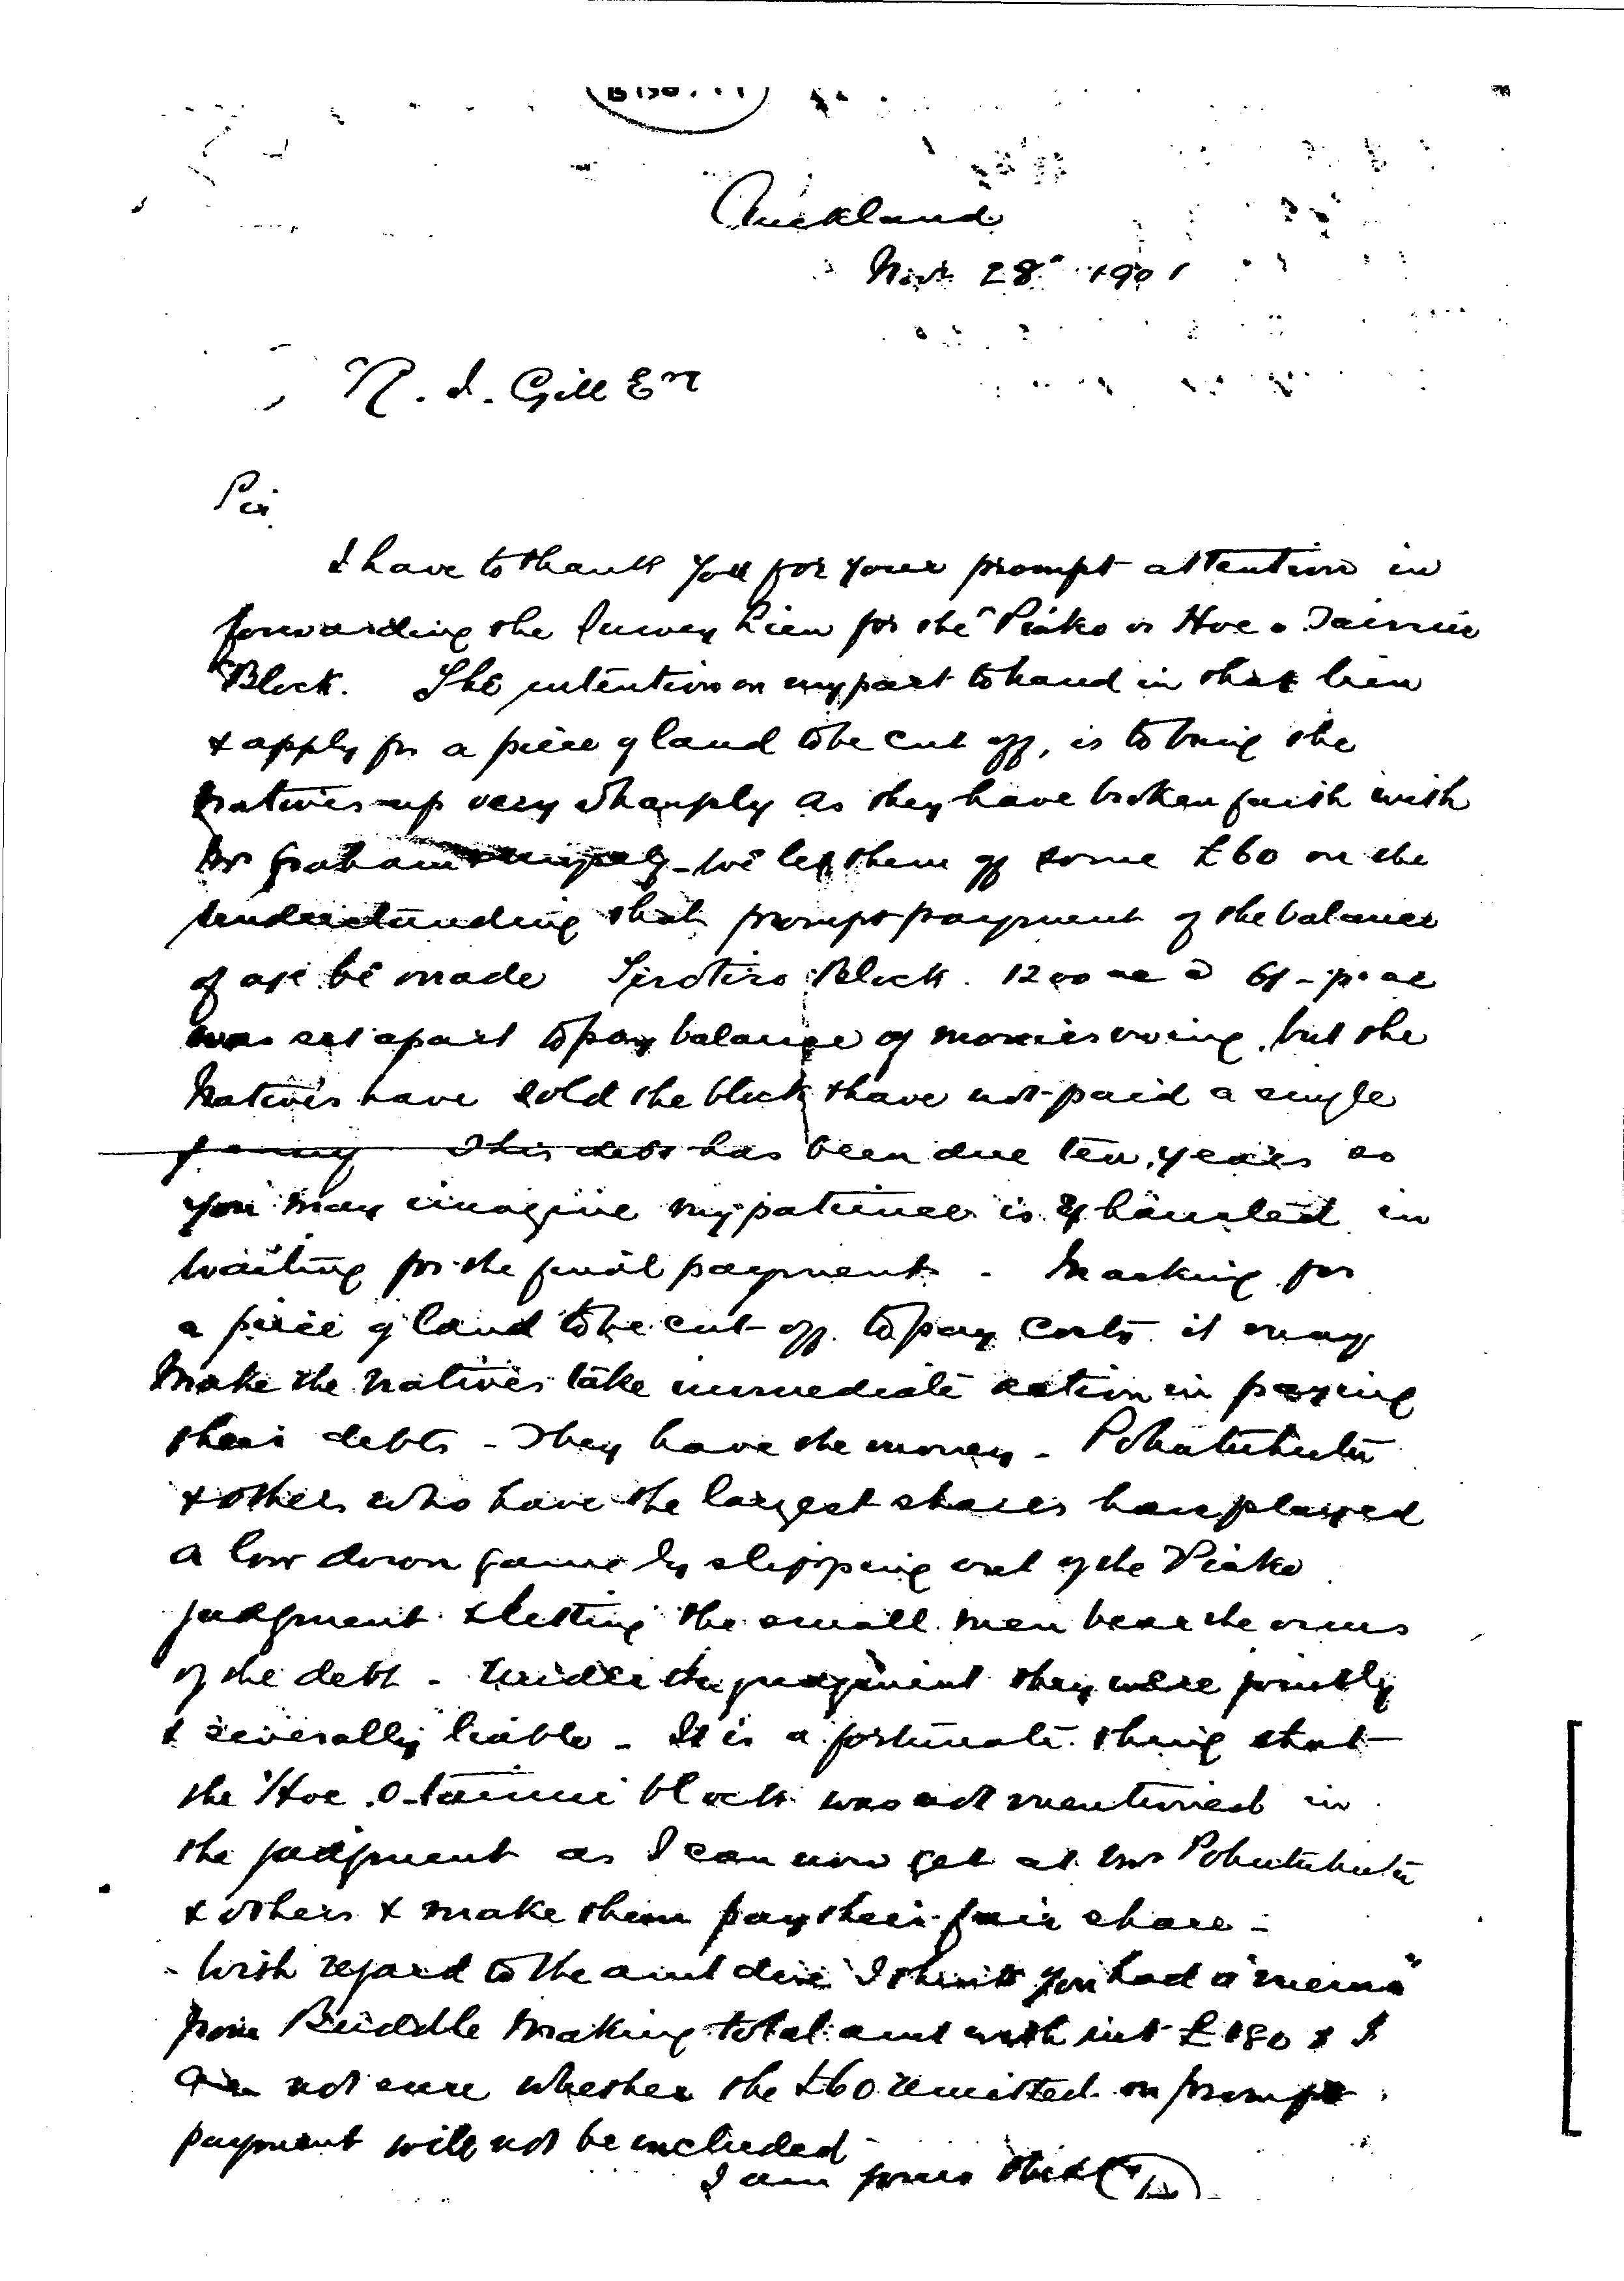 Auckland
Nov 28" 1901
R. J. Gill Esq
Sir
I have to thank you for your prompt attention in
forwarding the Survey Lien for the "Piako or Hoe o Tainui
"Block. The intention on my part to hand in that lien
& apply for a piece of land to be cut off, is to bring the
natives up very sharply as they have broken faith with
Mr Graham & myself - We let them off some £60 on the
understanding that prompt payment of the balance
of a/c be made Block. 1200 ac @ 6/- p. ac
was set apart to pay balance of monies owing, but the
Natives have sold the block & have not paid a single
penny This debt has been due ten years so
you may imagine my patience is exhausted in
waiting for the final payment - In asking for
a piece of land to be cut off to pay costs it may
make the natives take immediate action in paying
their debts - They have the money - Pohutuhutu
& others who have the largest shares have played
a low down game by slipping out of the Piako
judgment & letting the small men bear the onus
of the debt - Under the judgment they were jointly
& severally liable - It is a fortunate thing that
the "Hoe o tainui block was not mentioned in
the judgment as I can now get at Mr Pohutuhutu
& others & make them pay their fair share -
- With regard to the amt due I think you had a "memo"
from Buddle making total amt with int £180 & I
am not sure whether the £60 remitted on prompt
payment will not be included
I am yours